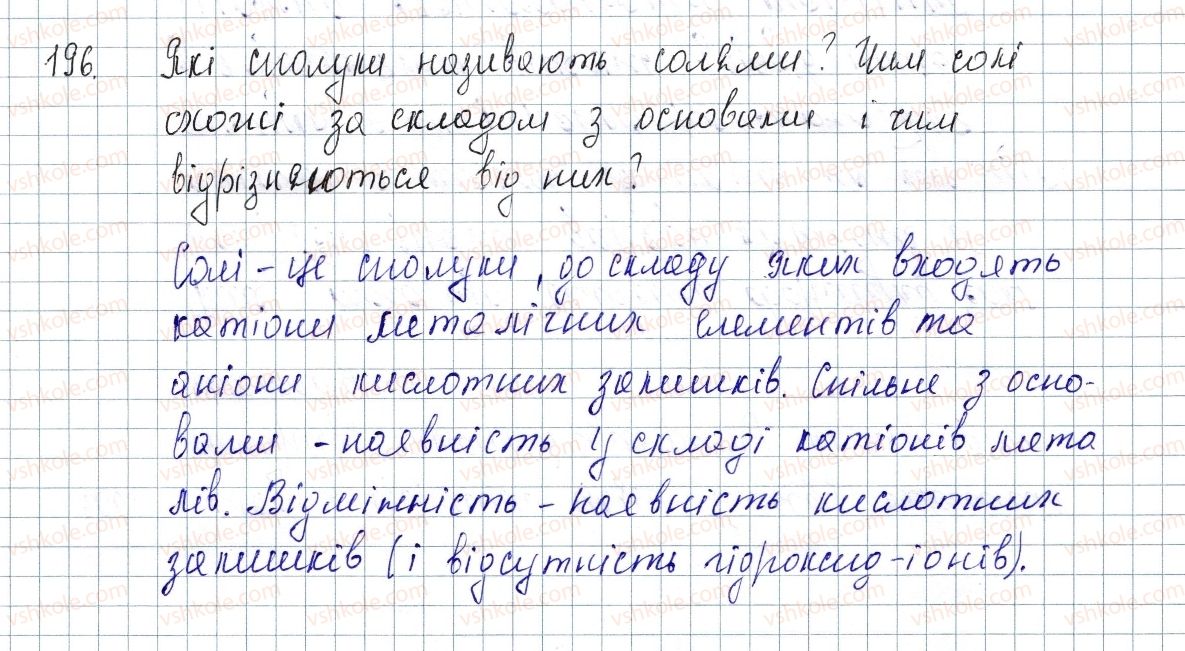 196. Які сполуки називають солями? Чим солі
схожі за складом з основами і чим
відрізняються від них?
Солі – це сполуки, до складу яких входять
катіони металічних елементів та
аніони кислотних залишків. Спільне з осно-
вами – наявність у складі катіонів мета
лів. Відмінність – наявність кислотних
залишків (і відсутність гідроксид-іонів).